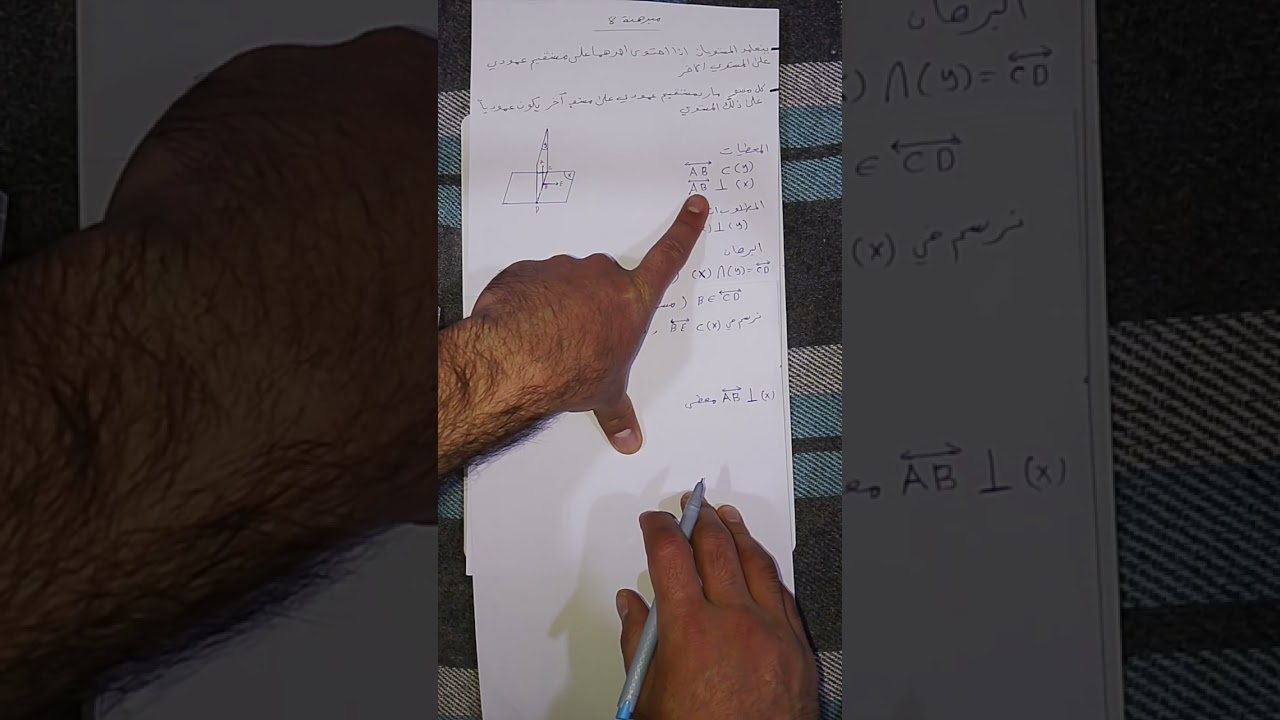 مبرهنة 8
يتعامد المستويان اذا احتوى احدهما على مستقيم عمودي
على المستوي الآخر
كل مستو مار بمستقيم عمودي على مستو آخر يكون عمودياً
على ذلك المستوي
المعطيات
AB ⊂ (y)
AB ⊥ (x)
المطلوب اثبات
(y) ⊥ (x)
البرهان
(x) ∩ (y) = CD
B ∈ CD
نرسم في (x) BE ⊂ (x)
AB ⊥ (x) معطى